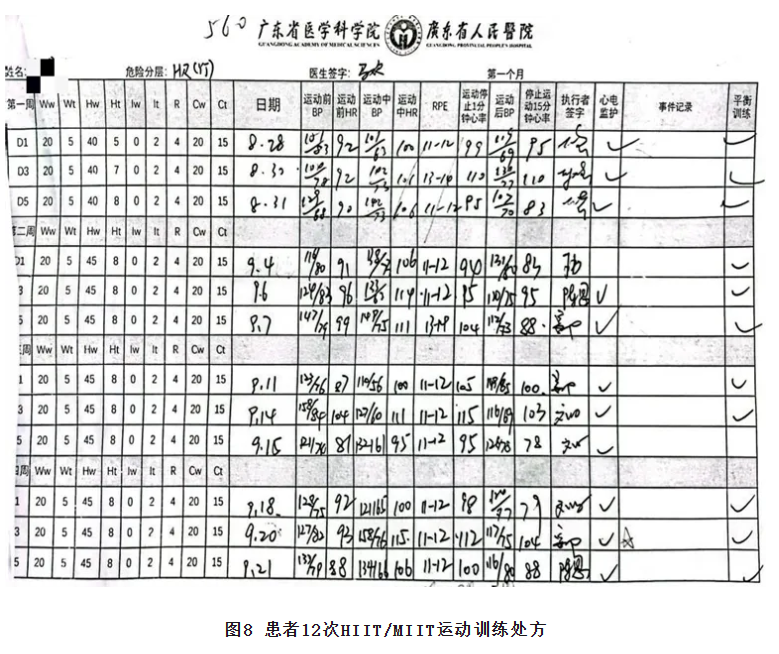 560 广东省医学科学院 廣東省人民醫院
GUANGDONG ACADEMY OF MEDICAL SCIENCES GUANGDONG PROVINCIAL PEOPLE'S HOSPITAL
姓名: 危险分层: 医生签字: 第一个月
第一周 Ww Wt Hw Ht Iw It R Cw Ct 日期 运动前BP 运动前HR 运动中BP 运动中HR RPE 运动停止1分钟心率 运动后BP 停止运动15分钟心率 执行者签字 心电监护 事件记录 平衡训练
D1 20 5 40 5 0 2 4 20 15 8.28 92 100 11-12 99 95 ✓ ✓
D3 20 5 40 7 0 2 4 20 15 8.30 92 13-14 110 110 ✓ ✓
D5 20 5 40 8 0 2 4 20 15 8.31 90 106 11-12 95 83 ✓ ✓
第二周 Ww Wt Hw Ht Iw It R Cw Ct
D1 20 5 45 8 0 2 4 20 15 9.4 119/80 91 106 11-12 94 ✓
3 20 5 45 8 0 2 4 20 15 9.6 124/83 96 114 11-12 95 110/75 95 ✓ ✓
5 20 5 45 8 0 2 4 20 15 9.7 147/79 99 149/75 111 104 112/73 88 ✓ ✓
三周 Ww Wt Hw Ht Iw It R Cw Ct
1 20 5 45 8 0 2 4 20 15 9.11 123/76 87 110/56 100 11-12 105 100 ✓ ✓
3 20 5 45 8 0 2 4 20 15 9.14 158/84 104 127/60 111 11-12 115 116/69 103 ✓ ✓
5 20 5 45 8 0 2 4 20 15 9.15 121/70 81 132/61 95 11-12 95 78 ✓
四周 Ww Wt Hw Ht Iw It R Cw Ct
1 20 5 45 8 0 2 4 20 15 9.18 128/75 92 121/65 100 11-12 98 79 ✓ ✓
3 20 5 45 8 0 2 4 20 15 9.20 127/82 93 158/76 115 11-12 112 117/75 104 ✓ ☆ ✓
5 20 5 45 8 0 2 4 20 15 9.21 132/79 88 134/66 106 11-12 100 116/80 88 ✓ ✓
图8 患者12次HIIT/MIIT运动训练处方